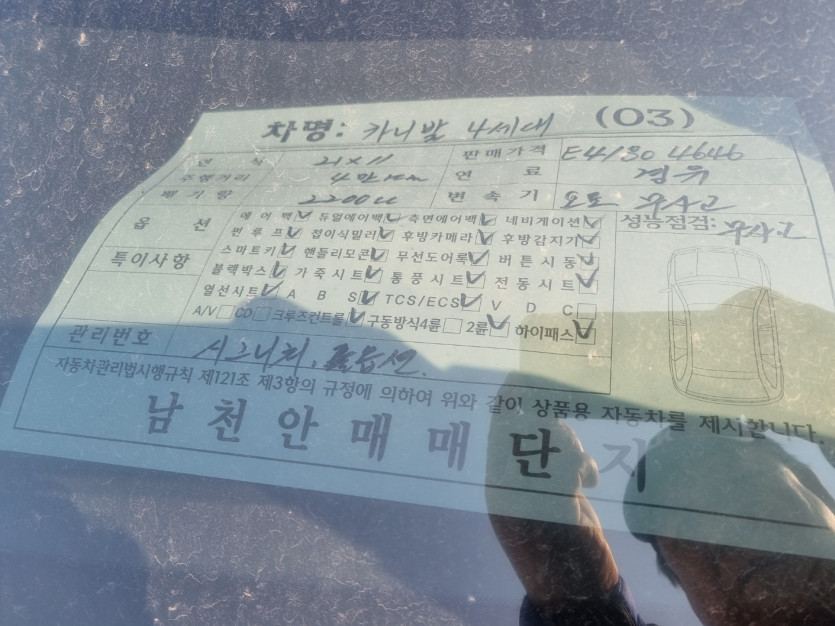 차명: 카니발 4세대 (03)
년식 21X11 판매가격 E4/30 4646
주행거리 4만km 연료 경유
배기량 2200cc 변속기 오토 무사고
옵션 에어백 듀얼에어백 측면에어백 네비게이션 성능점검: 무사고
썬루프 접이식밀러 후방카메라 후방감지기
특이사항 스마트키 핸들리모콘 무선도어록 버튼시동
블랙박스 가죽시트 통풍시트 전동시트
열선시트 ABS TCS/ECS VDC
A/V CD 크루즈컨트롤 구동방식4륜 2륜 하이패스
관리번호 시그니처, 풀옵션.
자동차관리법시행규칙 제121조 제3항의 규정에 의하여 위와 같이 상품용 자동차를 제시합니다.
남천안매매단지